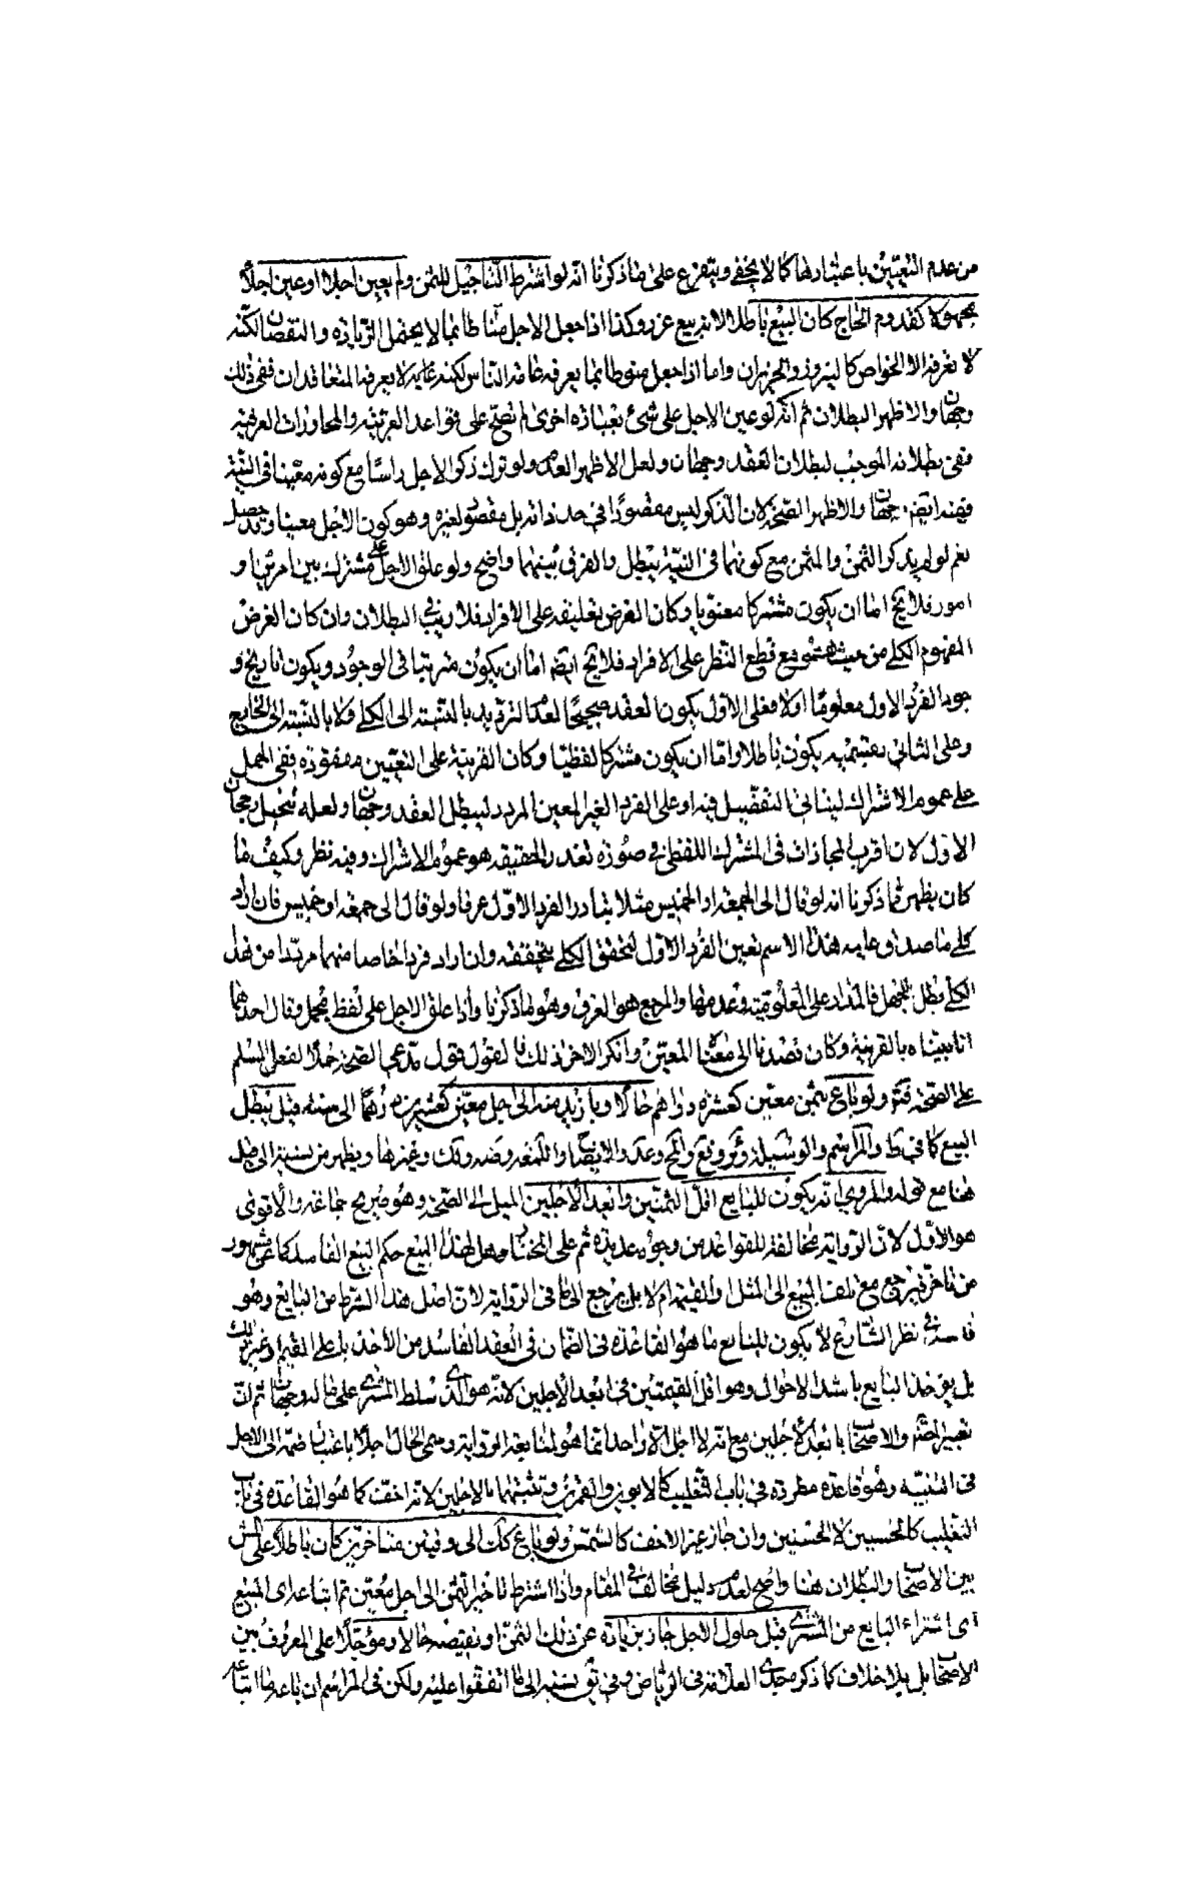 من عدم التعيين باعتبارها كما لا يخفى ويتفرع على ما ذكرنا انه لو اشترط التاجيل للثمن ولم يعين اجلا او عين اجلا
مجهولا كقدوم الحاج كان البيع باطلا لانه بيع غرر وكذا اذا جعل الاجل منا طا بما لا يحتمل الزيادة والنقصان لكنه
لا يعرفه الا الخواص كالنيروز والحزيران واما اذا جعل منوطا بما يعرفه عامة الناس لكنه لا يعرفه المتعاقدان ففى ذلك
وجهان والاظهر البطلان ثم انه لو عين الاجل على شئ بعبارة اخرى لم تصح على قواعد العربية والمحاورات العرفية
ففى بطلانه الموجب لبطلان العقد وجهان ولعل الاظهر العدم ولو ترك ذكر الاجل راسا مع كونه معينا فى النية
ففيه ايضا وجهان والاظهر الصحة لان الذكر ليس مقصودا فى حد ذاته بل مقصود لغيره وهو كون الاجل معينا وقد حصل
نعم لو لم يذكر الثمن والمثمن مع كونهما فى النية يبطل والفرق بينهما واضح ولو علق الاجل على مشترك بين امرين او
امور فلا يخ اما ان يكون مشتركا معنويا وكان الغرض تعليقه على الافراد فلا ريب فى البطلان وان كان الغرض
المفهوم الكلى من حيث هو هو مع قطع النظر على الافراد فلا يخ ايضا اما ان يكون مترتبا فى الوجود ويكون تاريخ و
جود الفرد الاول معلوما اولا فعلى الاول يكون العقد صحيحا لعدم الترديد بالنسبة الى الكلى ولا بالنسبة الى الخارج
وعلى الثانى بقسميه يكون باطلا واما ان يكون مشتركا لفظيا وكان القرينة على التعيين مفقودة ففى الحمل
على عموم الاشتراك ليتاتى التفصيل فيه او على الفرد الغير المعين المردد ليبطل العقد وجهان ولعله يتخيل رجحان
الاول لان اقرب المجازات فى المشترك اللفظى فى صورة تعذر الحقيقة هو عموم الاشتراك وفيه نظر وكيف ما
كان يظهر مما ذكرنا انه لو قال الى الجمعة او الخميس مثلا يتبادر الفرد الاول عرفا ولو قال الى جمعة او خميس فان اراد
كلى ما صدق عليه هذا الاسم تعين الفرد الاول لتحقق الكلى بتحققه وان اراد فردا خاصا منهما مرددا من هذا
الكلى بطل للجهل فالمدار على المعلومية وعدمها والمرجع هو العرف وهو ما ذكرنا واذا علق الاجل على لفظ مجمل وقال احدهما
انا بيناه بالقرينة وكان قصدنا الى معنا المعين وانكر الاخر ذلك فالقول قول مدعى الصحة حملا لفعل المسلم
على الصحة فتم ولو باع بثمن معين كعشرة دراهم حالا وبازيد منه الى اجل معين كعشرين درهما الى سنة قيل يبطل
البيع كما فى ط والمراسم والوسيلة وير وفع والمخ وعد والايضاح واللمعة وضه ولك وغيرها ويظهر من نسبته الى قيل
هنا مع قوله والمروى انه يكون للبايع اقل الثمنين وابعد الاجلين الميل الى الصحة وهو صريح جماعة والاقوى
هو الاول لان الرواية مخالفة للقواعد من وجوه عديدة ثم على المختار هل لهذا البيع حكم البيع الفاسد كما عن مشهور
من تاخر فيرجع مع تلف المبيع الى المثل او القيمة ام لا بل يرجع الى ما فى الرواية لان اصل هذا الشرط من البايع وهو
فاسد فى نظر الشارع لا يكون للبايع ما هو القاعدة فى الضمان فى العقد الفاسد من الاخذ باعلى القيم او غير ذلك
بل يؤخذ البايع باشد الاحوال وهو اقل القيمتين فى ابعد الاجلين لانه هو الذى سلط المشترى على ماله وجهان ثم ان
تعبير المصنف والاصحاب بابعد الاجلين مع انه لا اجل الا واحد انما هو لمتابعة الرواية وسمى الحال اجلا باعتبار ضمه الى الاجل
فى التثنية وهو قاعدة مطردة فى باب التغليب كالابوين والقمرين وتثنيتهما بالاجلين لانه اخف كما هو القاعدة فى باب
التغليب كالحسنين لا الحسينين وان جاز غير الاخف كالشمسين ولو باع كذلك الى وقتين متاخرين كان باطلا على الاشهر
بين الاصحاب والبطلان هنا واضح لعدم دليل مخالف فى المقام واذا اشترط تاخير الثمن الى اجل معين ثم ابتاعه اى المبيع
اى اشتراه البايع من المشترى قبل حلول الاجل جاز بزيادة عن ذلك الثمن او نقيصة حالا ومؤجلا على المعروف بين
الاصحاب بل بلا خلاف كما ذكره جدى العلامة فى الرياض وفى ئق نسبته الى ما اتفقوا عليه ولكن فى المراسم ان باعه ما ابتاعه